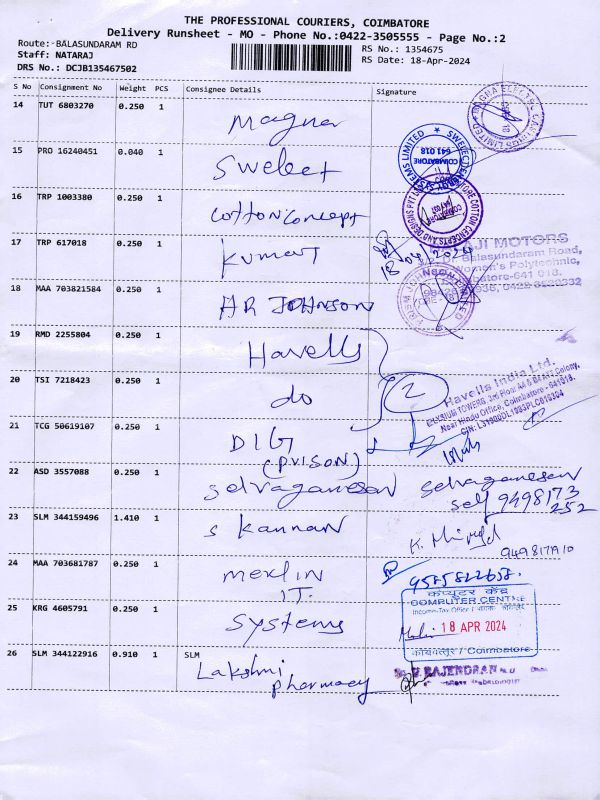 THE PROFESSIONAL COURIERS, COIMBATORE
Delivery Runsheet - MO - Phone No.:0422-3505555 - Page No.:2
Route:-BALASUNDARAM RD
Staff: NATARAJ
DRS No.: DCJB135467502
RS No.: 1354675
RS Date: 18-Apr-2024
S No Consignment No Weight PCS Consignee Details Signature
14 TUT 6803270 0.250 1 Magna
15 PRO 16240451 0.040 1 Swelect
16 TRP 1003380 0.250 1 Cotton Concept
17 TRP 617018 0.250 1 Kumar 18/04/2024
18 MAA 703821584 0.250 1 HR JOHNSON
19 RMD 2255804 0.250 1 Havells
20 TSI 7218423 0.250 1 do 2
21 TCG 50619107 0.250 1 DIG
(PRISON)
22 ASD 3557088 0.250 1 Selvaganesan Selvaganesan
self 9498173
252
23 SLM 344159496 1.410 1 S Kannan K.
24 MAA 703681787 0.250 1 Merlin
I.T.
25 KRG 4605791 0.250 1 Systems
26 SLM 344122916 0.910 1 SLM
Lakshmi
pharmacy
COIMBATORE
641 018
AJI MOTORS
Balasundaram Road,
Women's Polytechnic,
641 018.
Havells India Ltd.
Near Hindu Office, Coimbatore - 641018.
कंप्यूटर केंद्र
COMPUTER CENTRE
18 APR 2024
कोयंबत्तूर / Coimbatore
RAJENDRAN